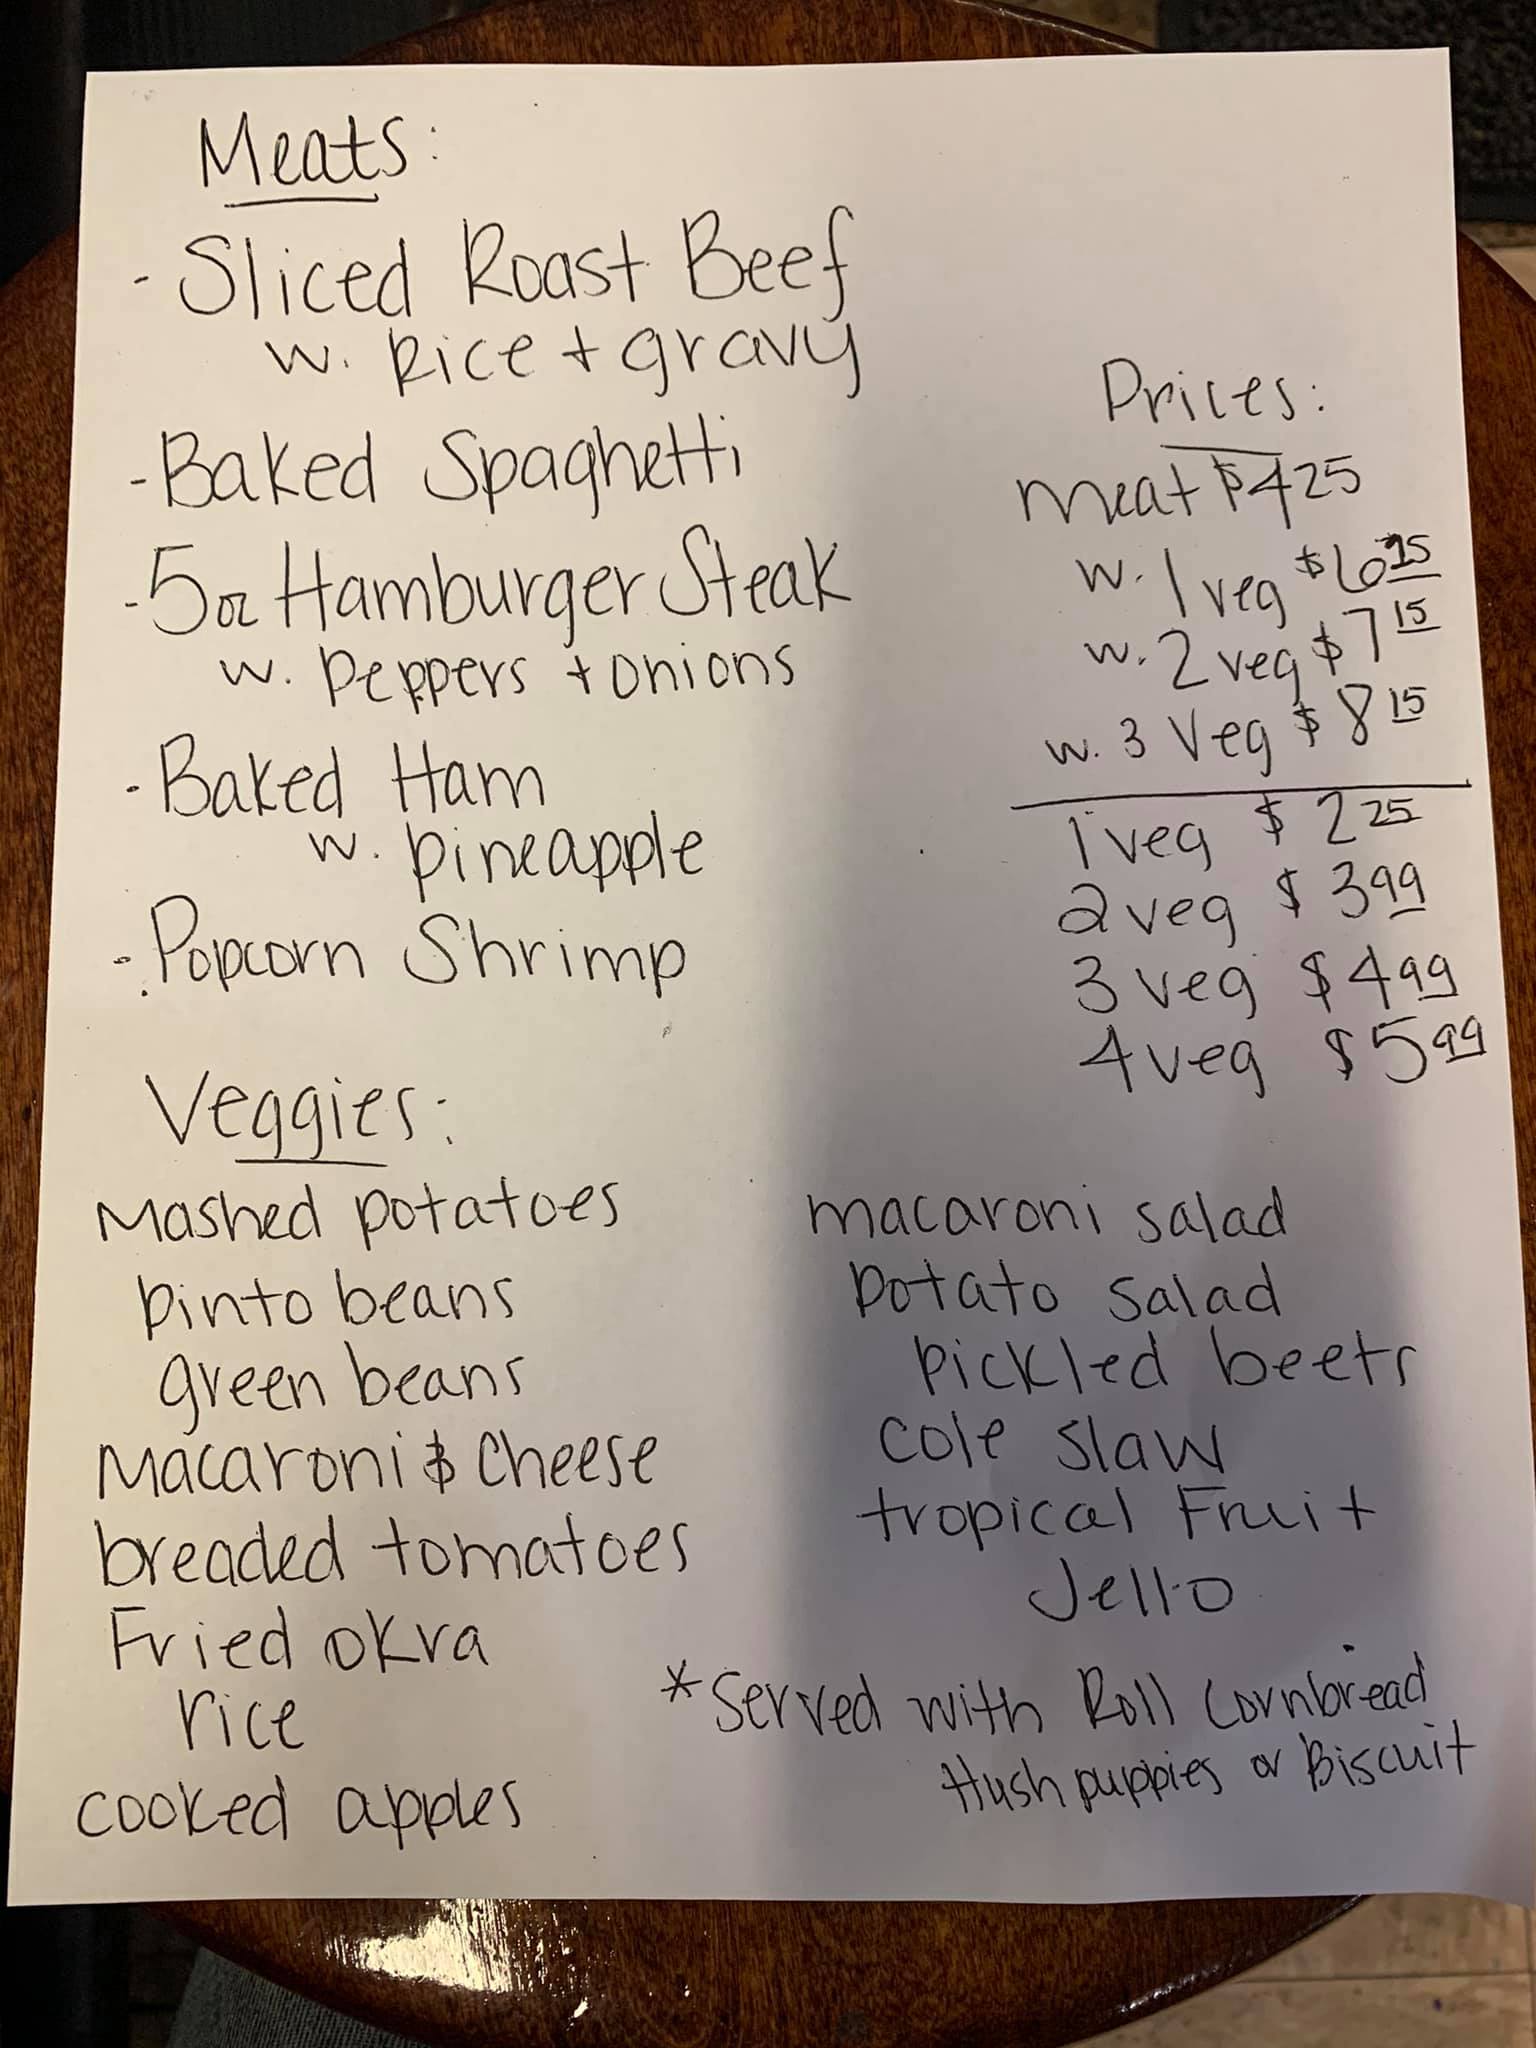 Meats:
- Sliced Roast Beef
w. Rice + gravy
- Baked Spaghetti
- 5oz Hamburger Steak
w. Peppers + onions
- Baked Ham
w. pineapple
- Popcorn Shrimp
Prices:
Meat $4 25
w. 1 veg $6
w. 2 veg $7 15
w. 3 Veg $8 15
1 veg $2 25
2 veg $3 99
3 veg $4 99
4 veg $5 99
Veggies:
Mashed potatoes
pinto beans
green beans
Macaroni & Cheese
breaded tomatoes
Fried okra
rice
cooked apples
macaroni salad
potato salad
pickled beets
cole slaw
tropical Fruit
Jello
*Served with Roll Cornbread
Hushpuppies or Biscuit